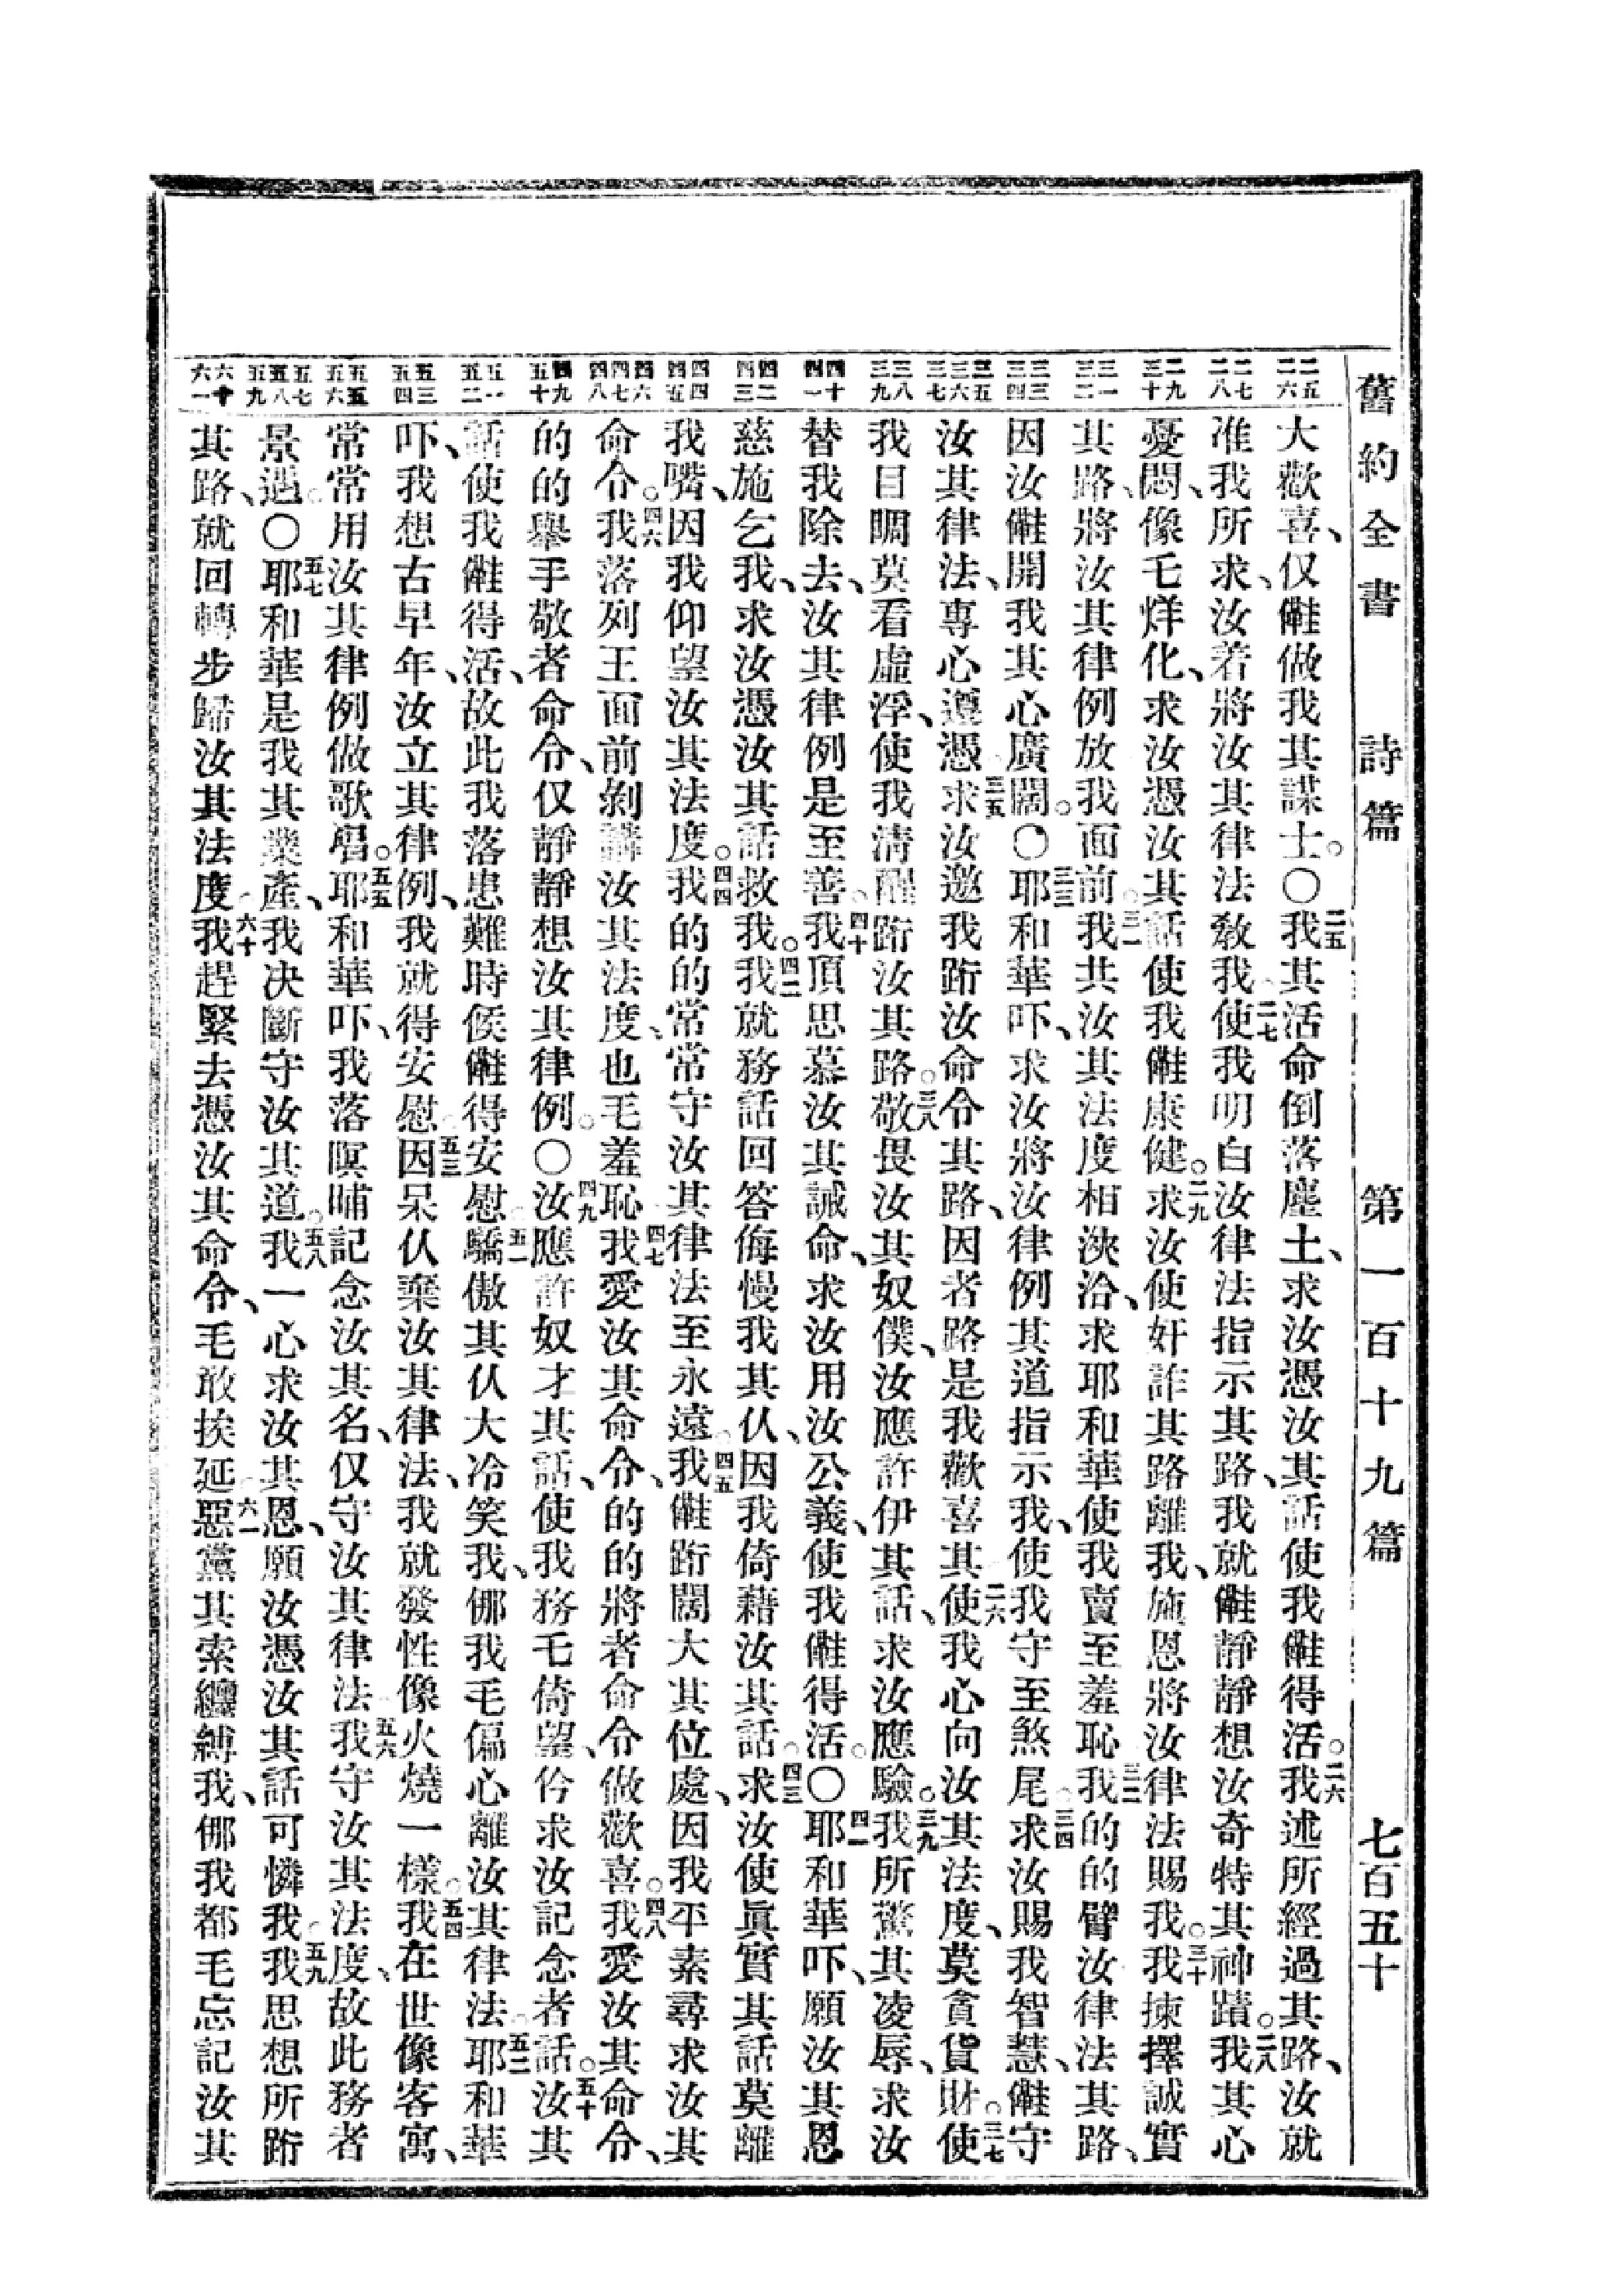 舊約全書　詩篇　第一百十九篇　七百五十
二五 二六
大歡喜、仅儺做我其謀士。〇二五我其活命倒落塵土、求汝憑汝其話使我儺得活。二六我述所經過其路、汝就
二七 二八
准我所求、汝若將汝其律法敎我。二七使我明白汝律法指示其路、我就儺靜靜想汝奇特其神蹟。二八我其心
二九 三十
憂悶、像毛烊化、求汝憑汝其話使我儺康健。二九求汝使奸詐其路離我、施恩將汝律法賜我。三十我揀擇誠實
三一 三二
其路、將汝其律例放我面前。三一我共汝其法度相浹洽、求耶和華使我賣至羞恥。三二我的的臂汝律法其路、
三三 三四
因汝儺開我其心廣闊。〇三三耶和華吓、求汝將汝律例其道指示我、使我守至煞尾。三四求汝賜我智慧、儺守
三五 三六 三七
汝其律法、專心遵憑。三五求汝邀我跲汝命令其路、因者路是我歡喜其。二六使我心向汝其法度、莫貪貨財。三七使
三八 三九
我目睭莫看虛浮、使我淸醒跲汝其路。三八敬畏汝其奴僕、汝應許伊其話、求汝應驗。三九我所驚其凌辱、求汝
四十 四一
替我除去、汝其律例是至善。四十我頂思慕汝其誡命、求汝用汝公義、使我儺得活。〇四一耶和華吓、願汝其恩
四二 四三
慈施乞我、求汝憑汝其話救我。四二我就務話回答侮慢我其仇、因我倚藉汝其話。四三求汝使眞實其話莫離
四四 四五
我嘴、因我仰望汝其法度。四四我的的常常守汝其律法至永遠。四五我儺跲闊大其位處、因我平素尋求汝其
四六 四七 四八
命令。四六我落列王面前剝講汝其法度、也毛羞恥。四七我愛汝其命令、的的將者命令做歡喜。四八我愛汝其命令、
四九 五十
的的舉手敬者命令、仅靜靜想汝其律例。〇四九汝應許奴才其話、使我務毛倚望、伶求汝記念者話。五十汝其
五一 五二
話使我儺得活、故此我落患難時候儺得安慰。五一驕傲其仇大冷笑我、倻我毛偏心離汝其律法。五二耶和華
五三 五四
吓、我想古早年、汝立其律例、我就得安慰。五三因呆仇棄汝其律法、我就發性像火燒一樣。五四我在世像客寓、
五五 五六
常常用汝其律例做歌唱。五五耶和華吓、我落暝晡記念汝其名、仅守汝其律法。五六我守汝其法度、故此務者
五七 五八 五九
景遇。〇五七耶和華是我其業產、我決斷守汝其道。五八我一心求汝其恩、願汝憑汝其話可憐我。五九我思想所跲
六十 六一
其路、就回轉步歸汝其法度。六十我趕緊去憑汝其命令、毛敢挨延。六一惡黨其索纏縛我、倻我都毛忘記汝其